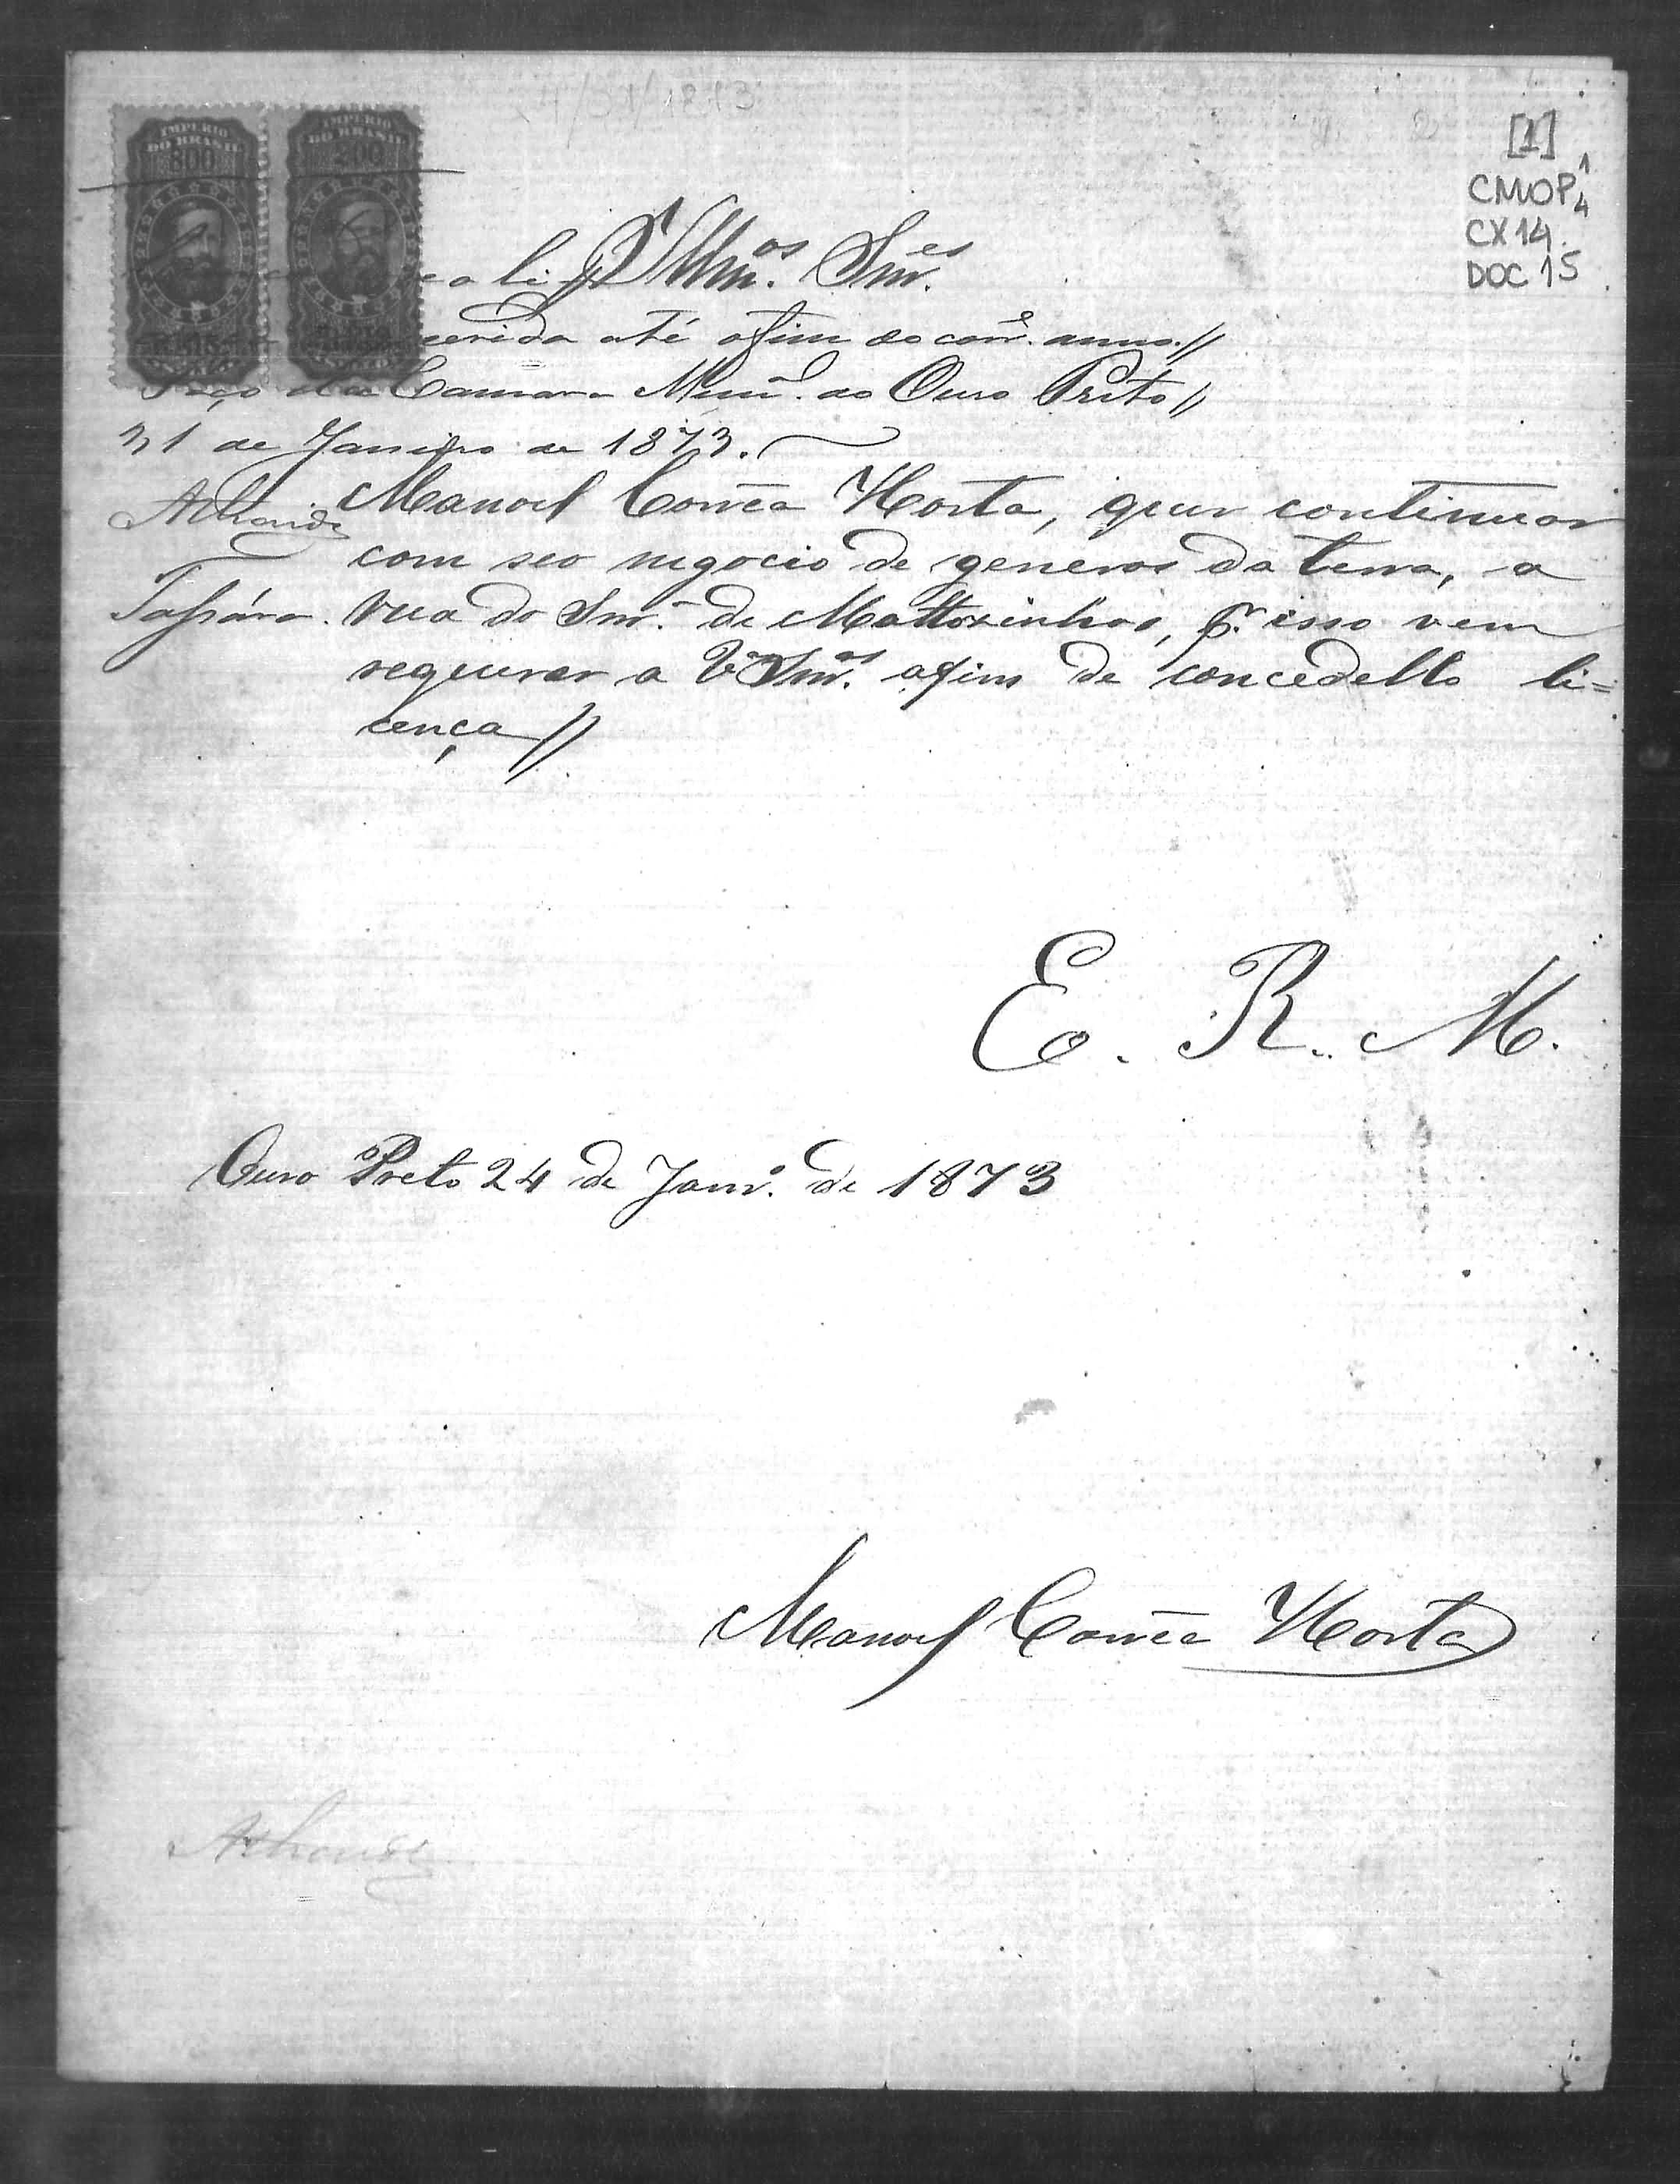 4/01/1873
[1]
CMOP 1 4
CX 14
DOC 15
IMPERIO DO BRASIL
IMPERIO DO BRASIL
200
Illmos. Snres.
a li
erida até o fim do corre. anno.//
Paço da Camara Mun. do Ouro Preto//
31 de Janeiro de 1873.
Manoel Corrêa Horta, quer continuar
com seo negocio de generos da terra, a
rua do Snr. de Mattozinhos, pr. isso vem
requerer a V Smas. afim de concedello li=
cença//
E. R. M.
Ouro Preto 24 de Janro. de 1873
Manoel Corrêa Horta